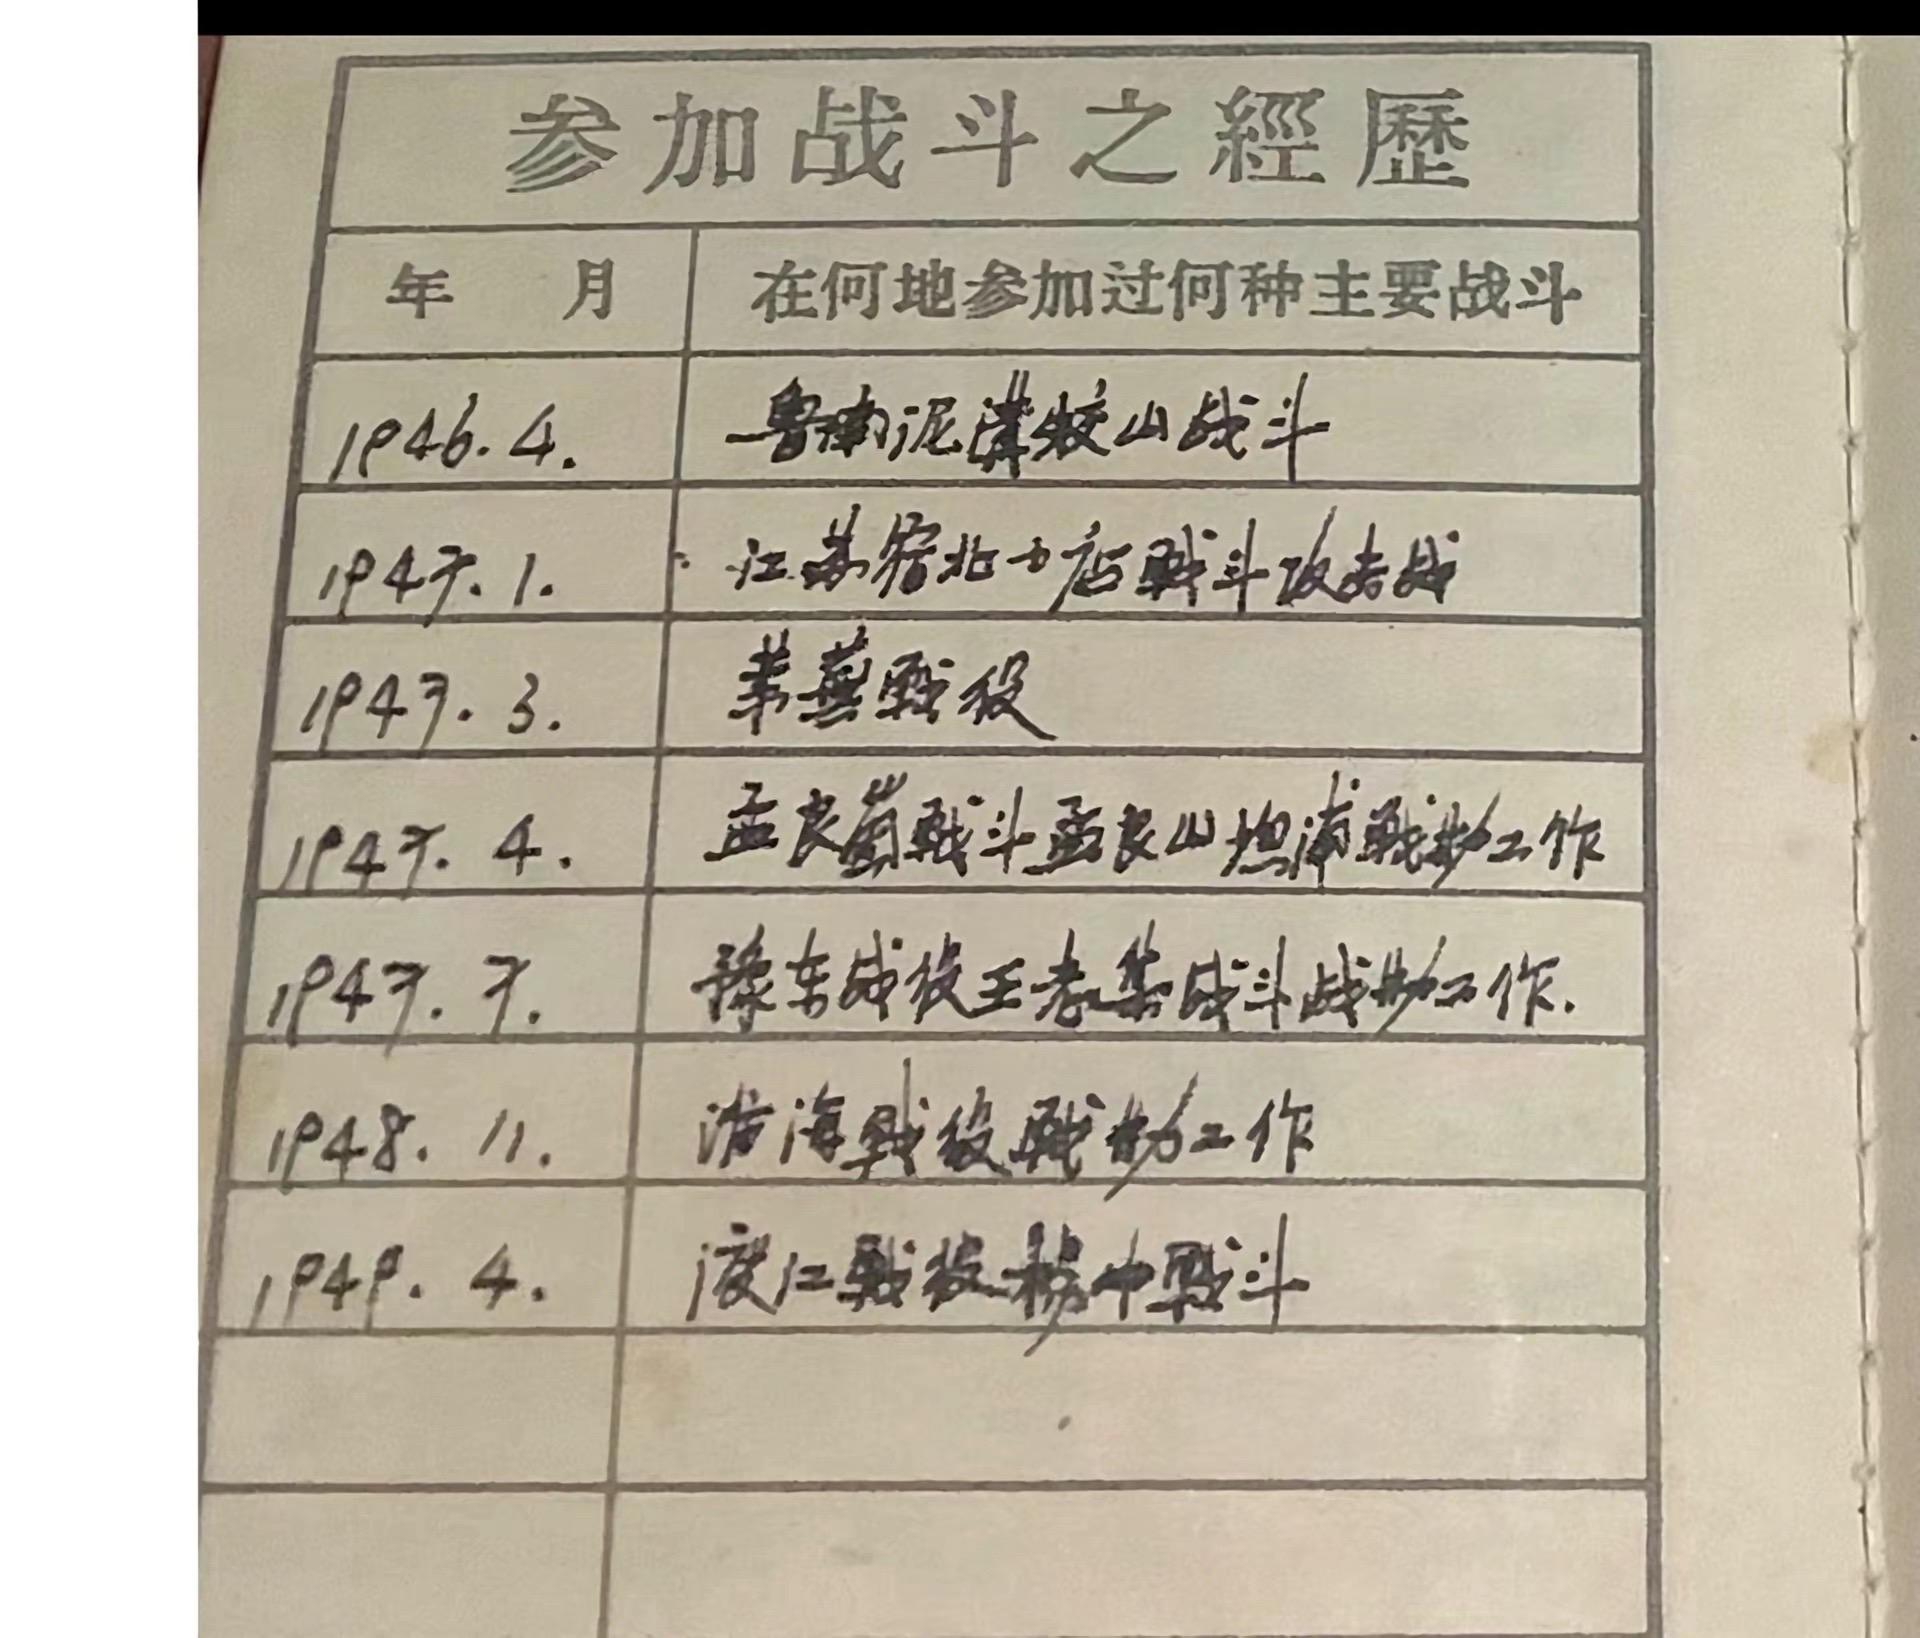 参加战斗之經歷
年 月 在何地参加过何种主要战斗
1946.4. 鲁南泥溝 山战斗
1947.1. 江苏宿北 店戰斗攻击战
1947.3. 莱蕪戰役
1947.4. 孟良崮戰斗孟良山坦浦戰勤工作
1947.7. 豫东战役王老集战斗战勤工作.
1948.11. 淮海戰役戰勤工作
1949.4. 渡江戰役 中戰斗